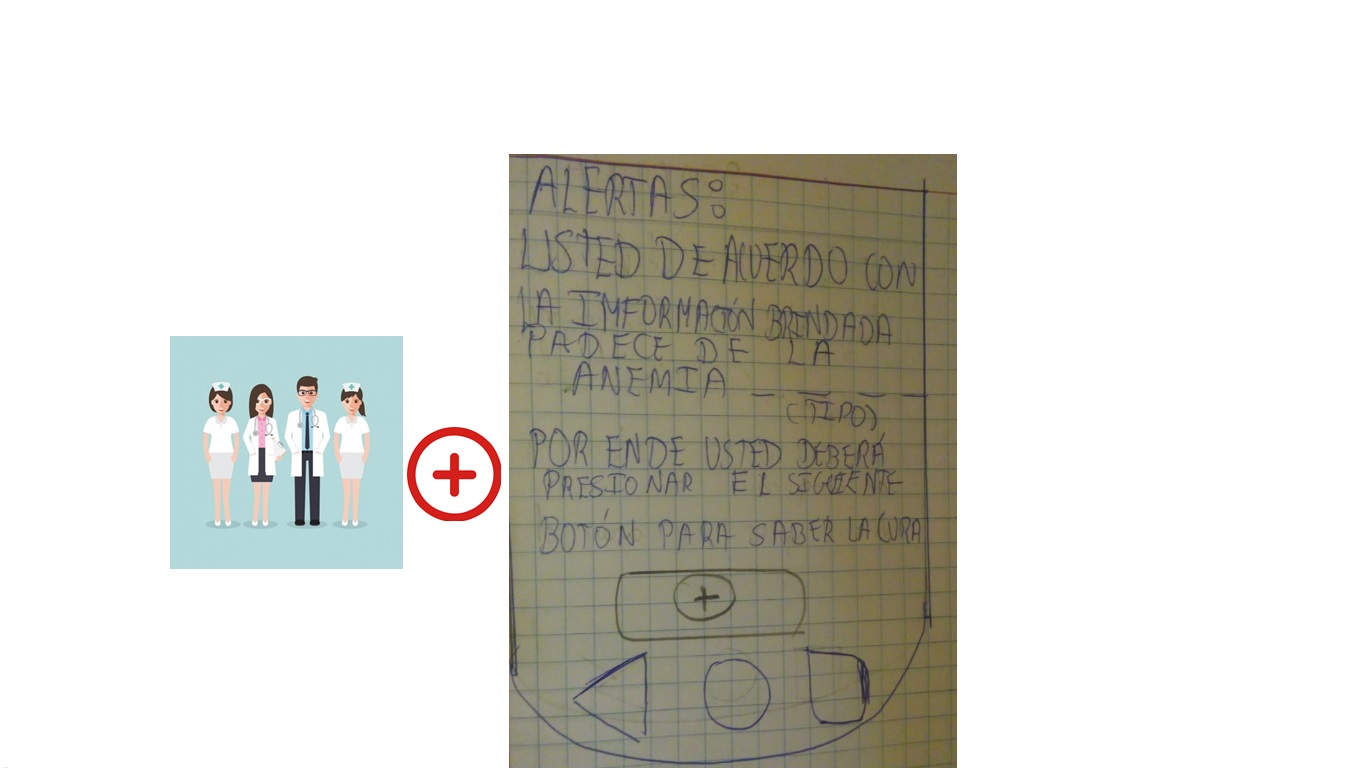 ALERTAS:
USTED DE ACUERDO CON
LA IMFORMACIÓN BRINDADA
PADECE DE LA
ANEMIA _ _ _ _
(TIPO)
POR ENDE USTED DEBERÁ
PRESIONAR EL SIGUIENTE
BOTÓN PARA SABER LA CURA